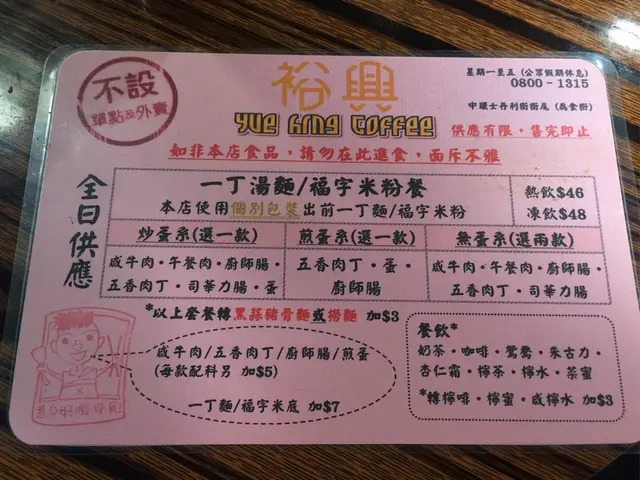 不設
單點及外賣
裕興
Yue Hing Coffee
星期一至五 (公眾假期休息)
0800 - 1315
中環士丹利街街尾 (為食街)
供應有限，售完即止
如非本店食品，請勿在此進食，面斥不雅
全日供應
一丁湯麵/福字米粉餐
本店使用個別包裝出前一丁麵/福字米粉
熱飲$46
凍飲$48
炒蛋系(選一款)
煎蛋系(選一款)
無蛋系(選兩款)
咸牛肉・午餐肉・廚師腸・
五香肉丁・司華力腸・蛋
五香肉丁・蛋・
廚師腸
咸牛肉・午餐肉・廚師腸・
五香肉丁・司華力腸
*以上套餐轉黑蒜豬骨麵或撈麵 加$3
咸牛肉/五香肉丁/廚師腸/煎蛋
(每款配料另 加$5)
一丁麵/福字米底 加$7
餐飲*
奶茶・咖啡・鴛鴦・朱古力・
杏仁霜・檸茶・檸水・菜蜜
*轉檸啡・檸蜜・咸檸水 加$3